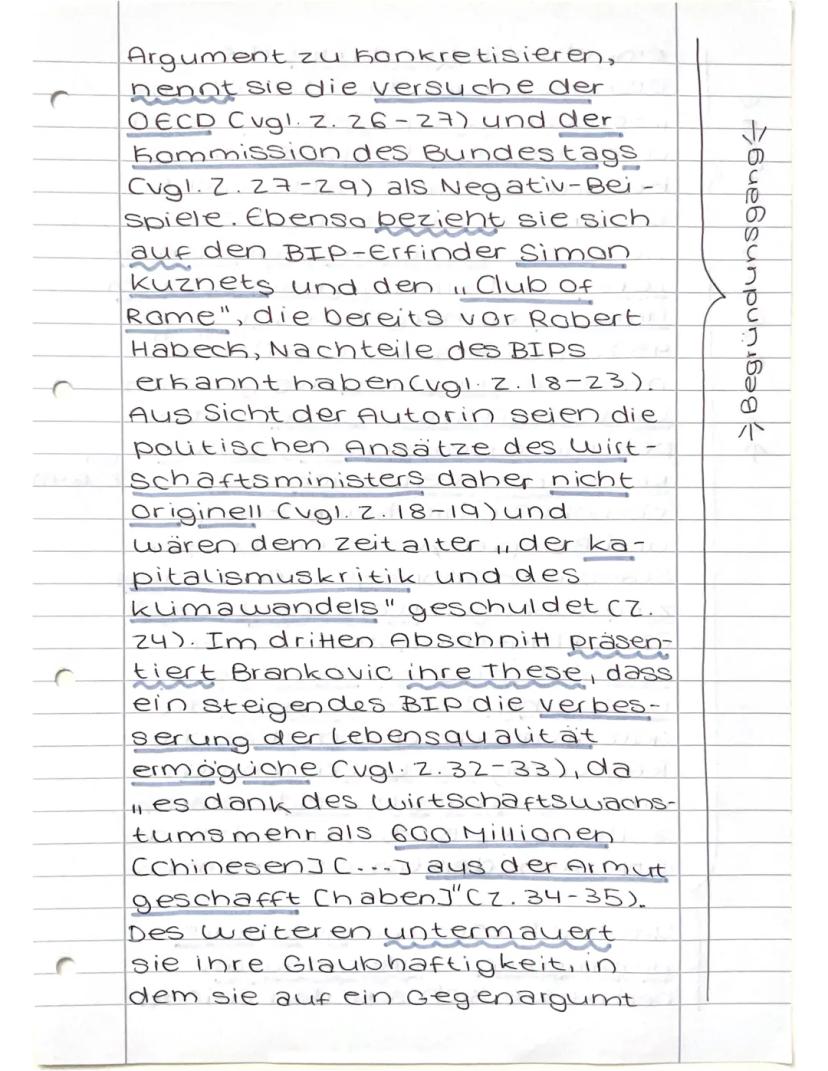 Argument zu konkretisieren,
nennt sie die versuche der
OECD (vgl. Z. 26-27) und der
Kommission des Bundestags
(vgl. Z. 27-29) als Negativ-Bei-
spiele. Ebenso bezieht sie sich
auf den BIP-Erfinder Simon
Kuznets und den „Club of
Rome", die bereits vor Robert
Habeck, Nachteile des BIPS
erkannt haben (vgl. Z. 18-23).
Aus Sicht der Autorin seien die
politischen Ansätze des Wirt-
schaftsministers daher nicht
originell (vgl. Z. 18-19) und
wären dem Zeitalter „der ka-
pitalismuskritik und des
klimawandels" geschuldet (Z.
24). Im dritten Abschnitt präsen-
tiert Brankovic ihre These, dass
ein steigendes BIP die verbes-
serung der Lebensqualität
ermögliche (vgl. Z. 32-33), da
„es dank des Wirtschaftswachs-
tums mehr als 600 Millionen
[Chinesen] [...] aus der Armut
geschafft [haben]" (Z. 34-35).
Des weiteren untermauert
sie ihre Glaubhaftigkeit, in
dem sie auf ein Gegenargumt
→ Begründungsgang ←